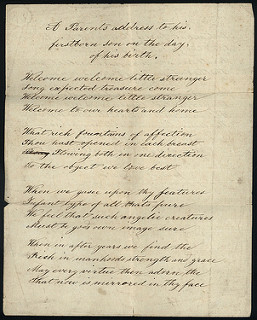 A Parent's address to his
firstborn son on the day
of his birth.
Welcome welcome little stranger
Long expected treasure come
Welcome welcome little stranger
Welcome to our hearts and home
What rich fountains of affection
Thou hast opened in each breast
Flowing both in one direction
To the object we love best
When we gaze upon thy features
Infant type of all thats pure
We feel that such angelic creatures
Must be gods own image sure
When in after years we find thee
Rich in manhoods strength and grace
May every virtue then adorn thee
That now is mirrored in thy face